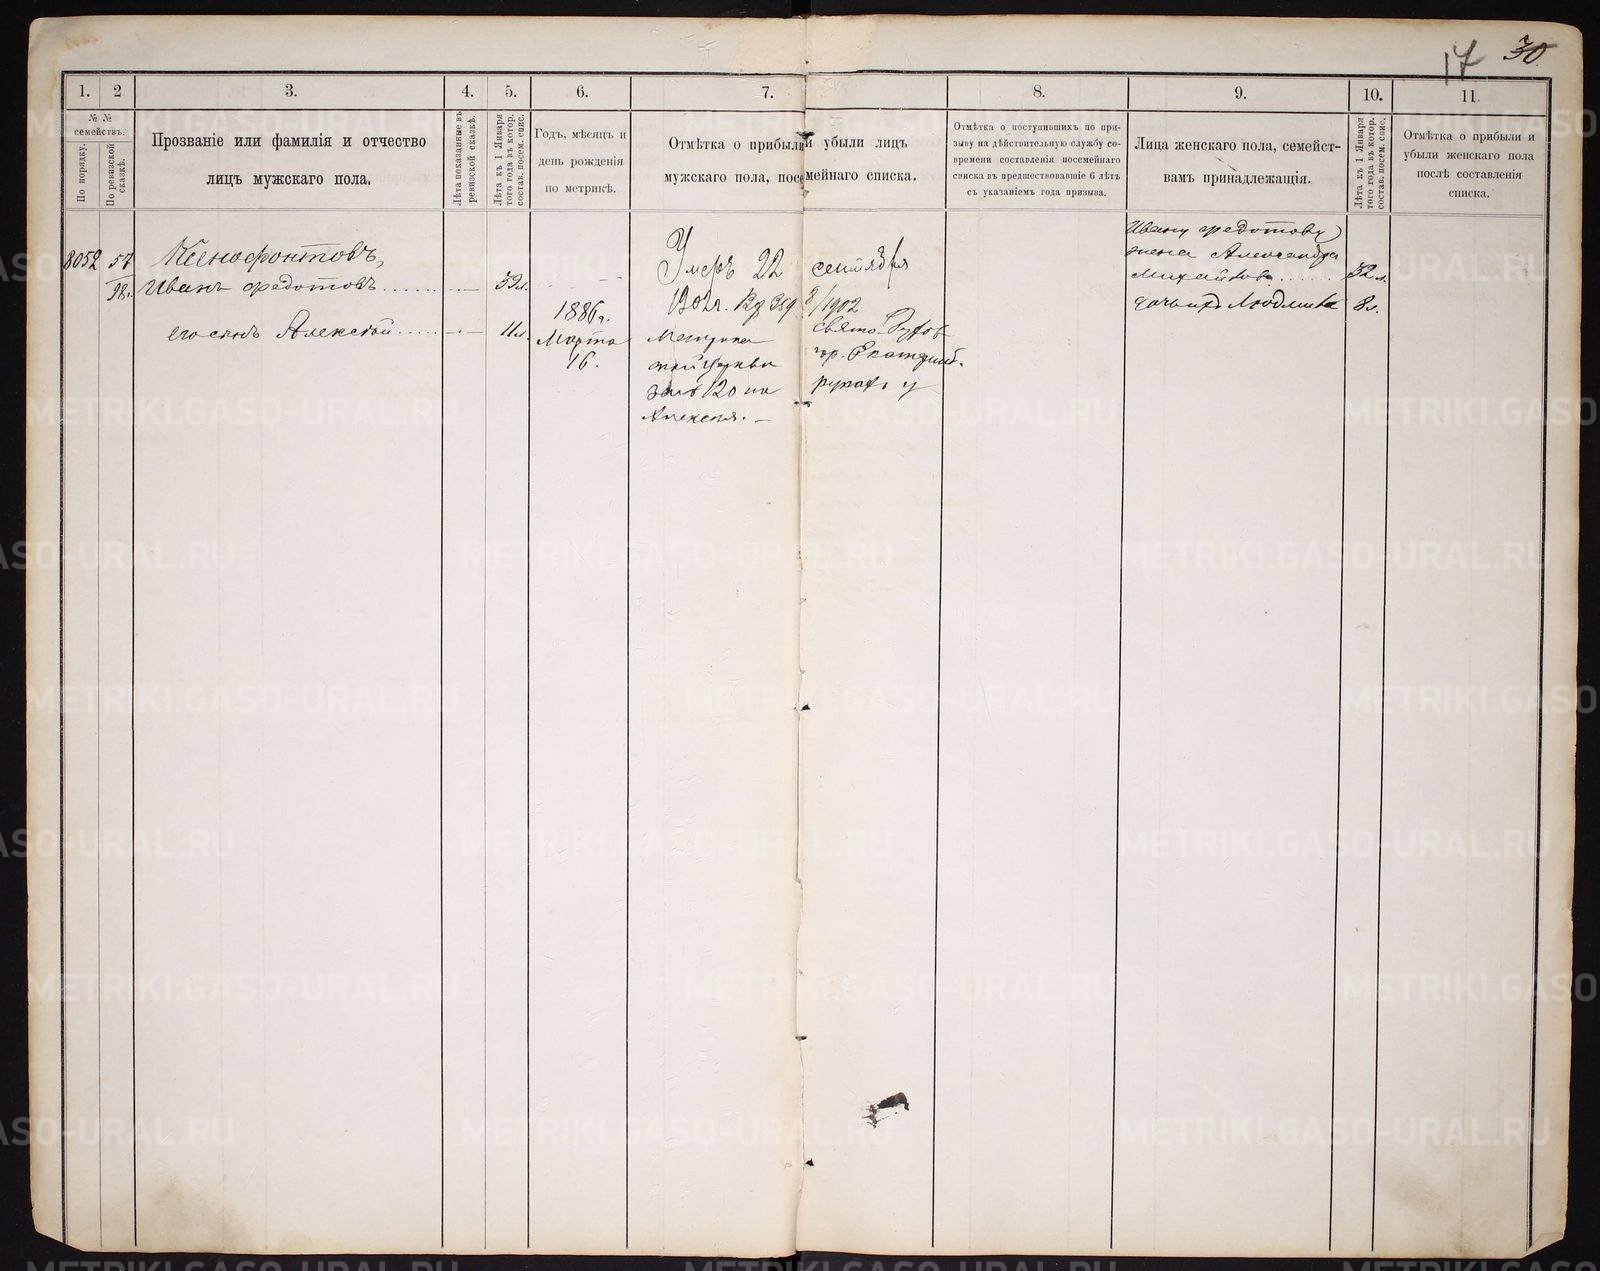 17 30
1. 2 3. 4. 5. 6. 7. 8. 9. 10. 11.
№ №
семействъ.
По порядку.
По ревизской
сказкѣ.
Прозваніе или фамилія и отчество
лицъ мужскаго пола.
Лѣта показанные въ
ревизской сказкѣ.
Лѣта къ 1 Января
того года въ котор.
состав. посем. спис.
Годъ, мѣсяцъ и
день рожденія
по метрикѣ.
Отмѣтка о прибыли и убыли лицъ
мужскаго пола, посемейнаго списка.
Отмѣтка о поступившихъ по при-
зыву на дѣйствительную службу со-
времени составленія посемейнаго
списка въ предшествовавшіе 6 лѣтъ
съ указаніемъ года призыва.
Лица женскаго пола, семейст-
вамъ принадлежащія.
Лѣта къ 1 Января
того года въ котор.
состав. посем. спис.
Отмѣтка о прибыли и
убыли женскаго пола
послѣ составленія
списка.
8052 57
98г.
Ксенофонтовъ,
Иванъ Федотовъ 52л.
его сынъ Алексѣй 11л.
1886г.
Марта
16.
Умеръ 22 сентября
1902г. 359 8/1902
Метрика Свято-Духов
ской церкви гор. Екатеринб.
за № 120 на руках у
Алексѣя.
Ивана Федотова
жена Александра
Михайлова 32л.
дочь ихъ Людмила 8л.
METRIKI.GASO-URAL.RU